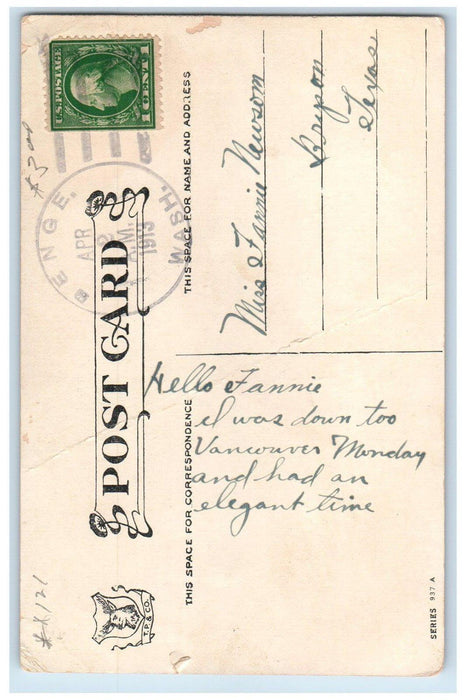 U.S. POSTAGE
1 CENT 1
BENGE,
WASH.
APR
2
P.M.
1913
POST CARD
THIS SPACE FOR CORRESPONDENCE
THIS SPACE FOR NAME AND ADDRESS
Hello Fannie
I was down too
Vancouver Monday
and had an
elegant time
Miss Fannie Newsom
Texas
T.P. & CO.
SERIES 937 A